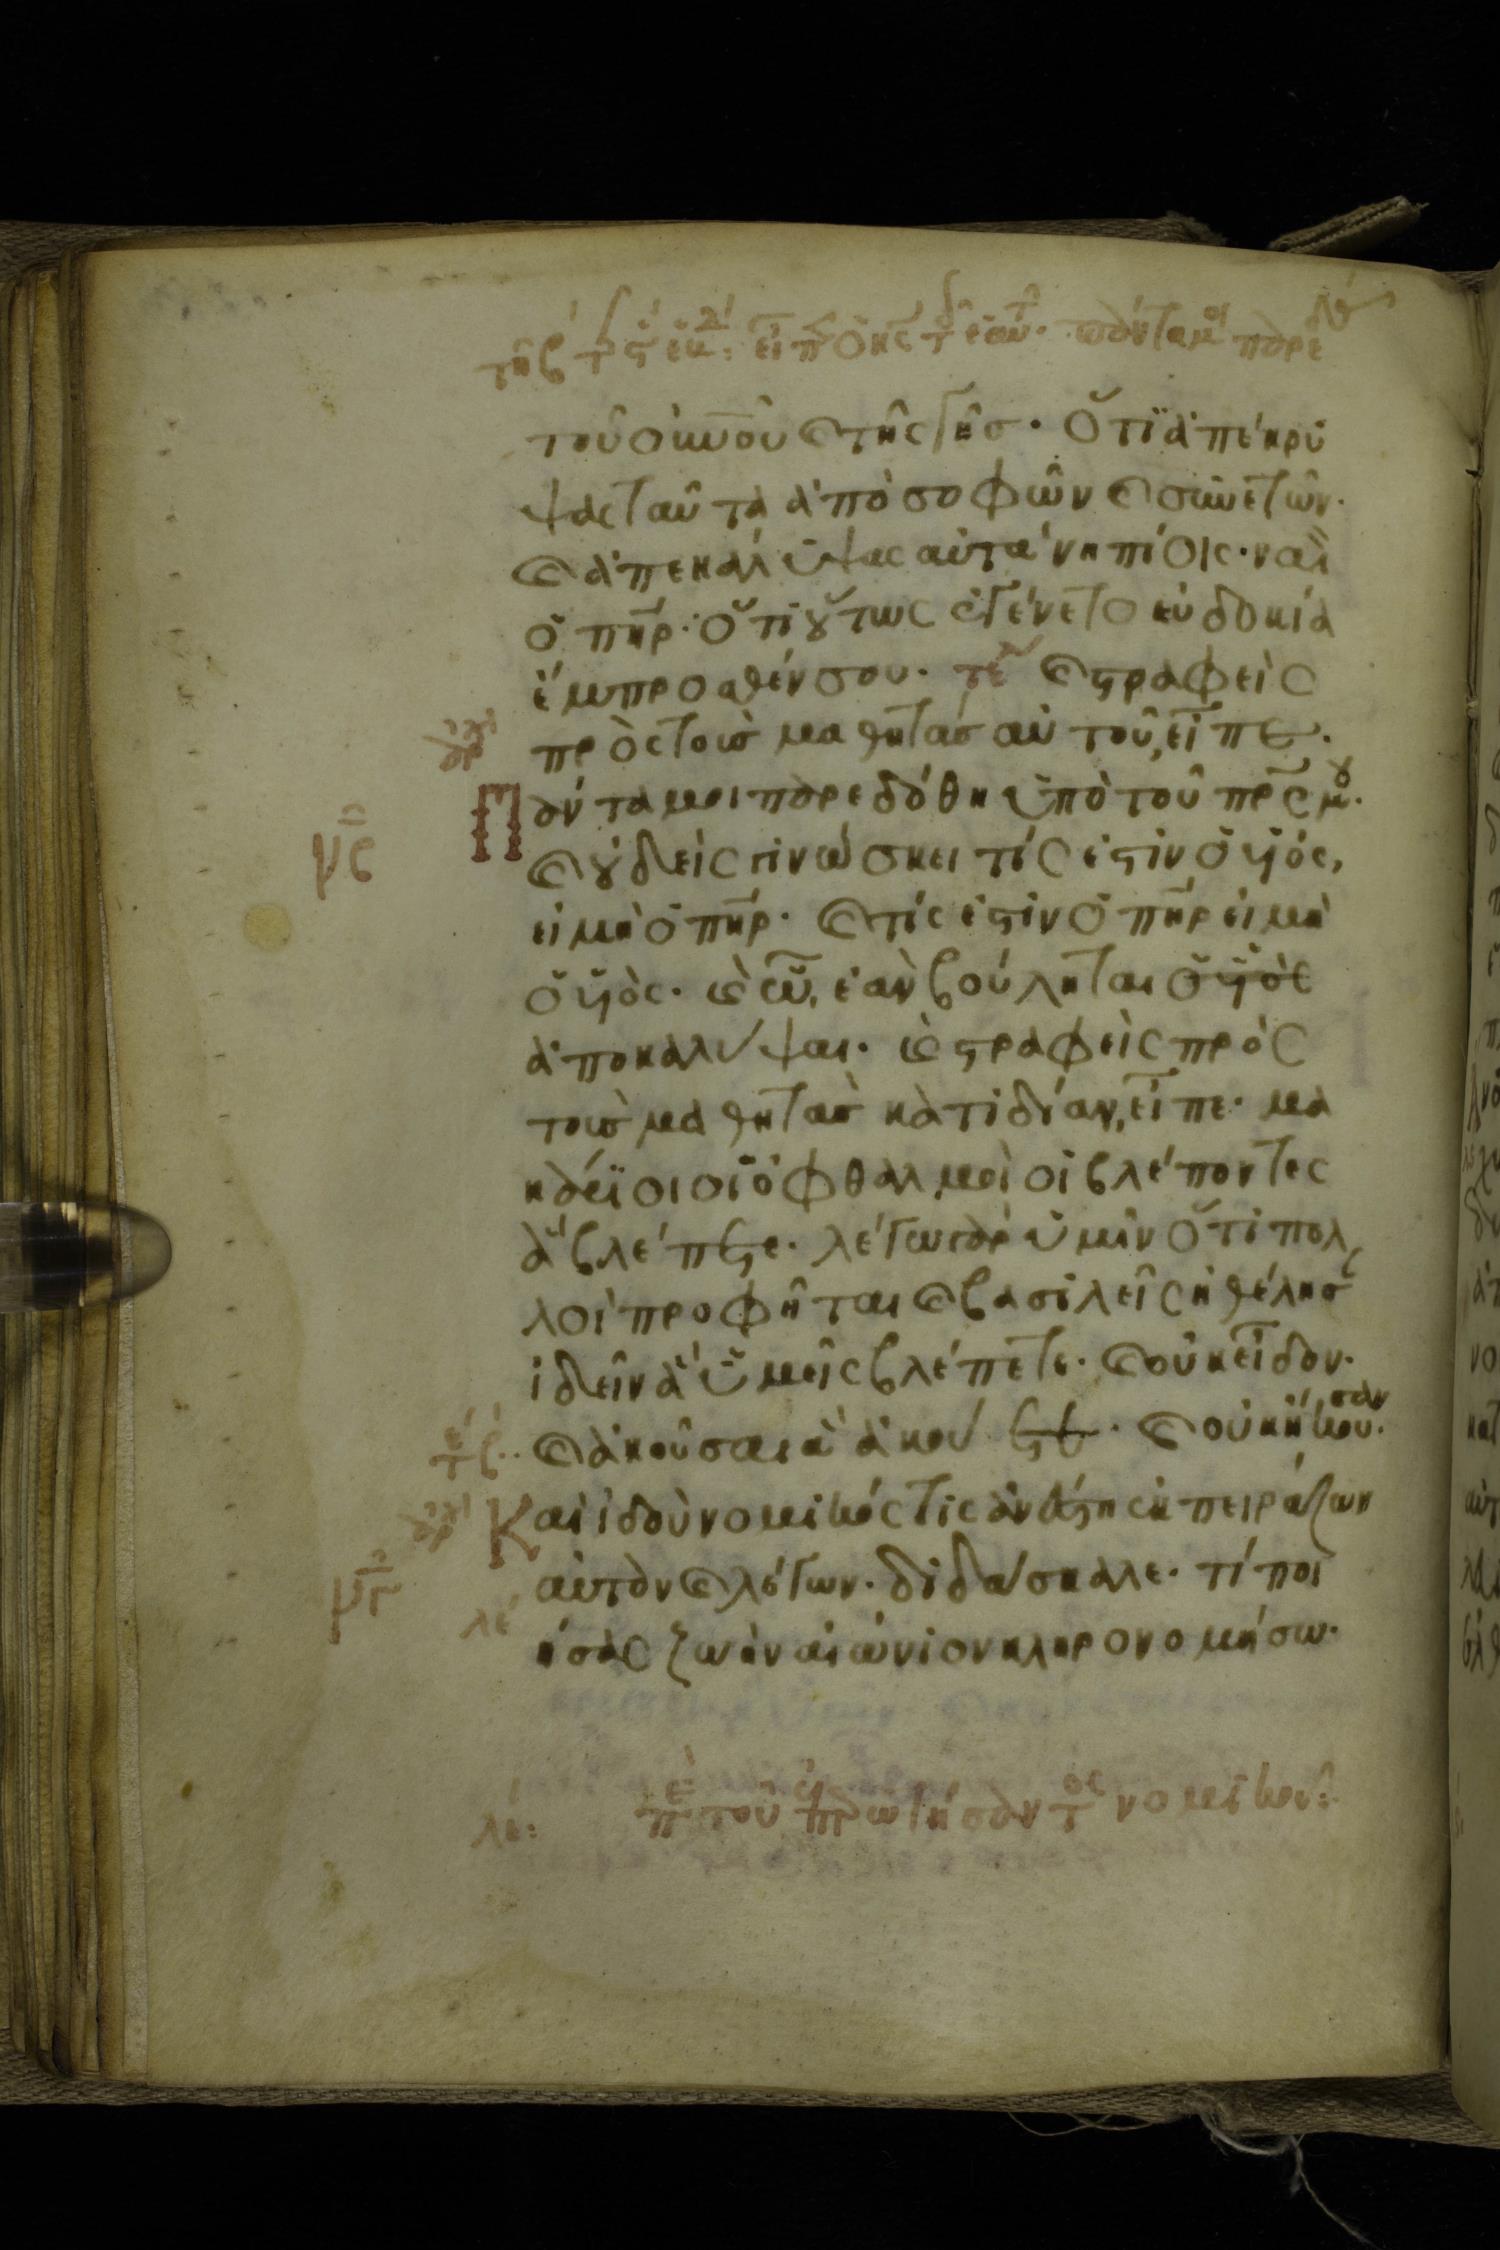 τοῦ οὐνοῦ καὶ τῆς γῆς· ὅτι ἀπέκρυ
ψας ταῦτα ἀπὸ σοφῶν καὶ συνετῶν·
καὶ ἀπεκάλυψας αὐτὰ νηπίοις· ναὶ
ὁ πηρ· ὅτι οὕτως ἐγένετο εὐδοκία
ἔμπροσθέν σου· τε καὶ στραφεὶς
πρὸς τοὺς μαθητὰς αὐτοῦ, εἶπε·
Πάντα μοι παρεδόθη ὑπὸ τοῦ πρς μου·
καὶ οὐδεὶς γινώσκει τίς ἐστιν ὁ υἱός,
εἰ μὴ ὁ πηρ· καὶ τίς ἐστιν ὁ πηρ εἰ μὴ
ὁ υἱὸς· καὶ ὧ, ἐὰν βούληται ὁ υἱὸς
ἀποκαλύψαι· καὶ στραφεὶς πρὸς
τοὺς μαθητὰς κατιδίαν, εἶπε· μα
κάριοι οἱ ὀφθαλμοὶ οἱ βλέποντες
ἃ βλέπετε· λέγω γὰρ ὑμῖν ὅτι πολ
λοὶ προφῆται καὶ βασιλεῖς ἠθέλησ
ἰδεῖν ἃ ὑμεῖς βλέπετε· καὶ οὐκ εἶδον·
καὶ ἀκοῦσαι ἃ ἀκούετε· καὶ οὐκ ἤκουσαν·
Καὶ ἰδοὺ νομικός τις ἀνέστη ἐκπειράζων
αὐτὸν καὶ λέγων· διδάσκαλε· τί ποι
ήσας ζωὴν αἰώνιον κληρονομήσω·
λε: πε τοῦ ἐπρωτήσαντος νομικοῦ: